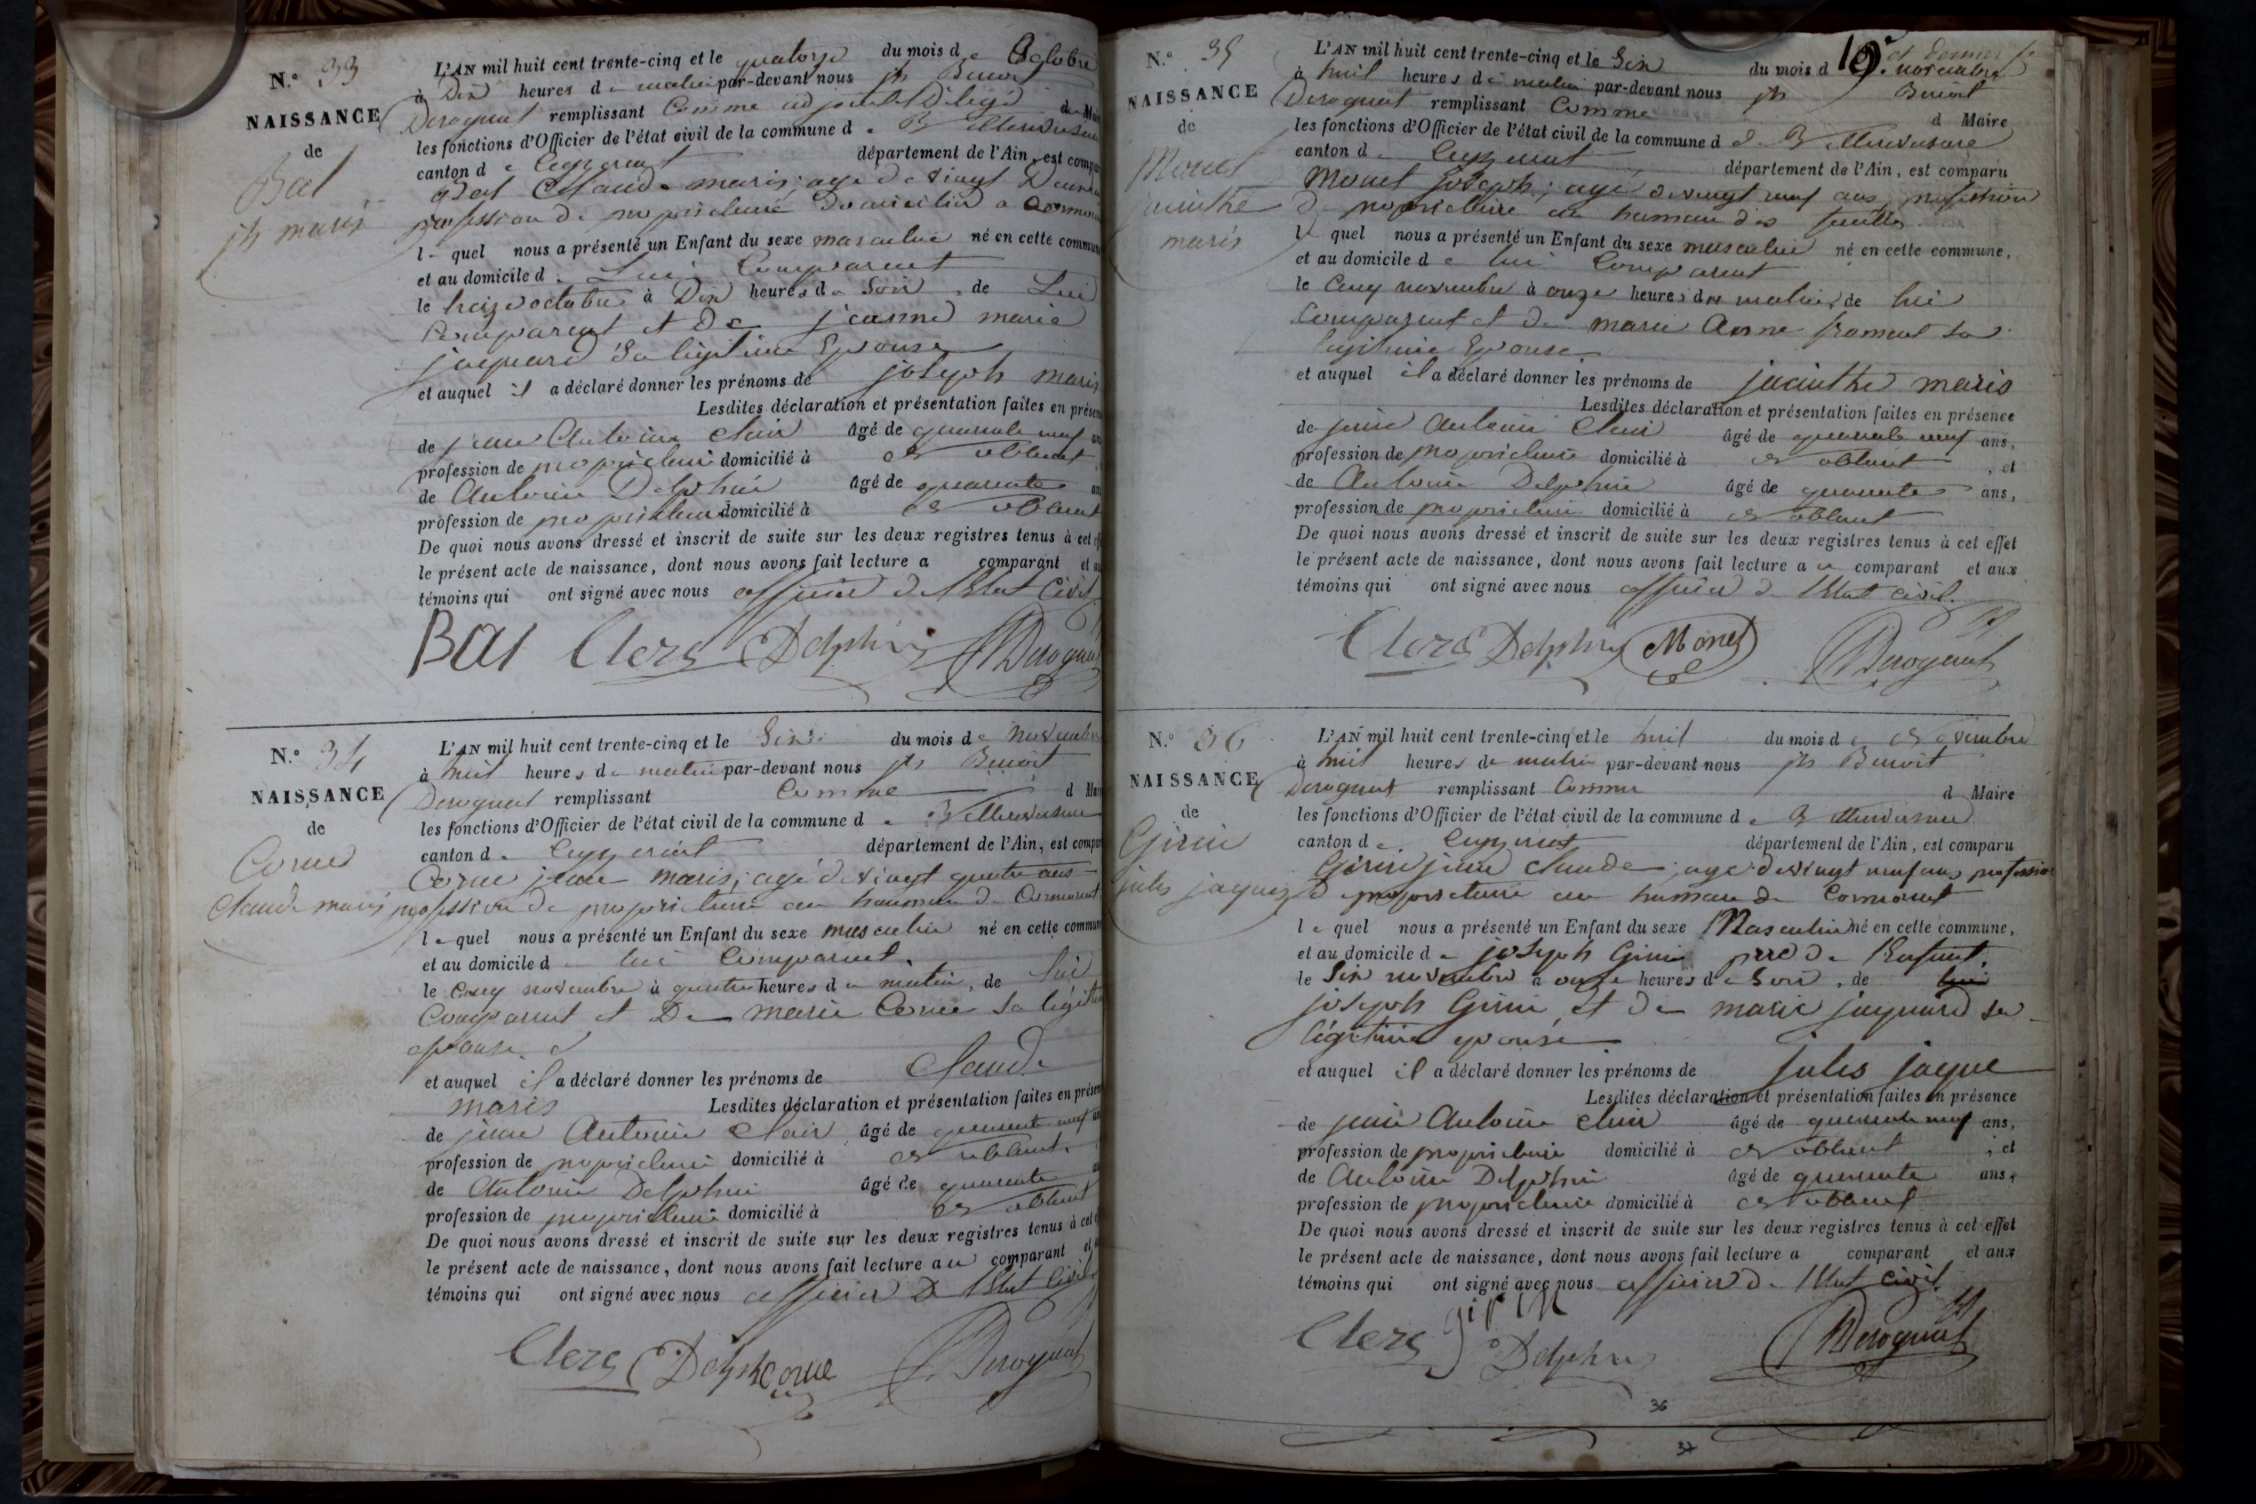 N.º 33
NAISSANCE
de
Bal
jh marie
L'AN mil huit cent trente-cinq et le quatorze du mois de Octobre
à Dix heures de matin par-devant nous jh Benoit
Derognat remplissant Comme adjoint délégué
les fonctions d'Officier de l'état civil de la commune de Villereversure
canton de Ceyzeriat département de l'Ain, est compa
Claude marie, agé de vingt
profession de propriétaire domicilié à
l- quel nous a présenté un Enfant du sexe masculin né en cette commune
et au domicile de Lui Comparent
le treize octobre à Dix heures de Soir, de Lui
Comparent et De jeanne marie
jaquard Sa légitime Epouse
et auquel il a déclaré donner les prénoms de joseph marie
Lesdites déclaration et présentation faites en prése
de jean Antoine Clair âgé de quarante neuf
profession de propriétaire domicilié à
de Antoine Delphin âgé de quarante
profession de propriétaire domicilié à
De quoi nous avons dressé et inscrit de suite sur les deux registres tenus à cet
le présent acte de naissance, dont nous avons fait lecture a comparant et
témoins qui ont signé avec nous officier de l'Etat Civil
Bal Clerc Delphin Derognat
N.º 34
NAISSANCE
de
Corne
Claude marie
L'AN mil huit cent trente-cinq et le Six du mois de novembre
à huit heures de matin par-devant nous jh Benoit
Derognat remplissant Comme d Mai
les fonctions d'Officier de l'état civil de la commune de Villereversure
canton de Ceyzeriat département de l'Ain, est compa
Corne jean marie, agé de vingt quatre ans
profession de propriétaire au hameau de Cormorent
le quel nous a présenté un Enfant du sexe masculin né en cette commun
et au domicile de lui Comparent,
le Cinq novembre à quatre heures de matin, de lui
Comparent et De marie Corne sa légitime
epouse
et auquel il a déclaré donner les prénoms de Claude
marie Lesdites déclaration et présentation faites en présen
de jean Antoine Clair âgé de quarante neuf
profession de propriétaire domicilié à
de Antoine Delphin âgé de quarante
profession de propriétaire domicilié à
De quoi nous avons dressé et inscrit de suite sur les deux registres tenus à cet
le présent acte de naissance, dont nous avons fait lecture au comparant et
témoins qui ont signé avec nous officier De l'Etat Civil
Clerc Delph Corne Derognat
19.e et dernier f
N.º 35
NAISSANCE
de
Monet
jacinthe
marie
L'AN mil huit cent trente-cinq et le Six du mois d novembre
à huit heures de matin par-devant nous jh Benoit
Derognat remplissant Comme d Maire
les fonctions d'Officier de l'état civil de la commune de Villereversure
canton de Ceyzeriat département de l'Ain, est comparu
Monet joseph, agé de vingt neuf ans, profession
de propriétaire au hameau des
le quel nous a présenté un Enfant du sexe masculin né en cette commune,
et au domicile de lui Comparent
le Cinq novembre à onze heures du matin, de lui
Comparent et de marie Anne froment sa
légitime Epouse
et auquel il a déclaré donner les prénoms de jacinthe marie
Lesdites déclaration et présentation faites en présence
de jean Antoine Clair âgé de quarante neuf ans,
profession de propriétaire domicilié à , et
de Antoine Delphin âgé de quarante ans,
profession de propriétaire domicilié à
De quoi nous avons dressé et inscrit de suite sur les deux registres tenus à cet effet
le présent acte de naissance, dont nous avons fait lecture au comparant et aux
témoins qui ont signé avec nous officier de l'Etat civil.
Clerc Delphin Monet Derognat
N.º 36
NAISSANCE
de
Girin
jules jaques
L'AN mil huit cent trente-cinq et le huit du mois de novembre
à huit heures de matin par-devant nous jh Benoit
Derognat remplissant Comme d Maire
les fonctions d'Officier de l'état civil de la commune de Villereversure
canton de Ceyzeriat département de l'Ain, est comparu
Girin jean claude, agé de vingt neuf ans, profession
de propriétaire au hameau de Cormorent
le quel nous a présenté un Enfant du sexe Masculin né en cette commune,
et au domicile de joseph Girin pere de l'Enfant,
le Six novembre à onze heures de Soir, de lui
joseph Girin et de marie jaquard sa
légitime epouse
et auquel il a déclaré donner les prénoms de jules jaque
Lesdites déclaration et présentation faites en présence
de jean Antoine Clair âgé de quarante neuf ans,
profession de propriétaire domicilié à , et
de Antoine Delphin âgé de quarante ans,
profession de propriétaire domicilié à
De quoi nous avons dressé et inscrit de suite sur les deux registres tenus à cet effet
le présent acte de naissance, dont nous avons fait lecture a comparant et aux
témoins qui ont signé avec nous officier de l'Etat civil.
Clerc girin Delphin Derognat
36
37